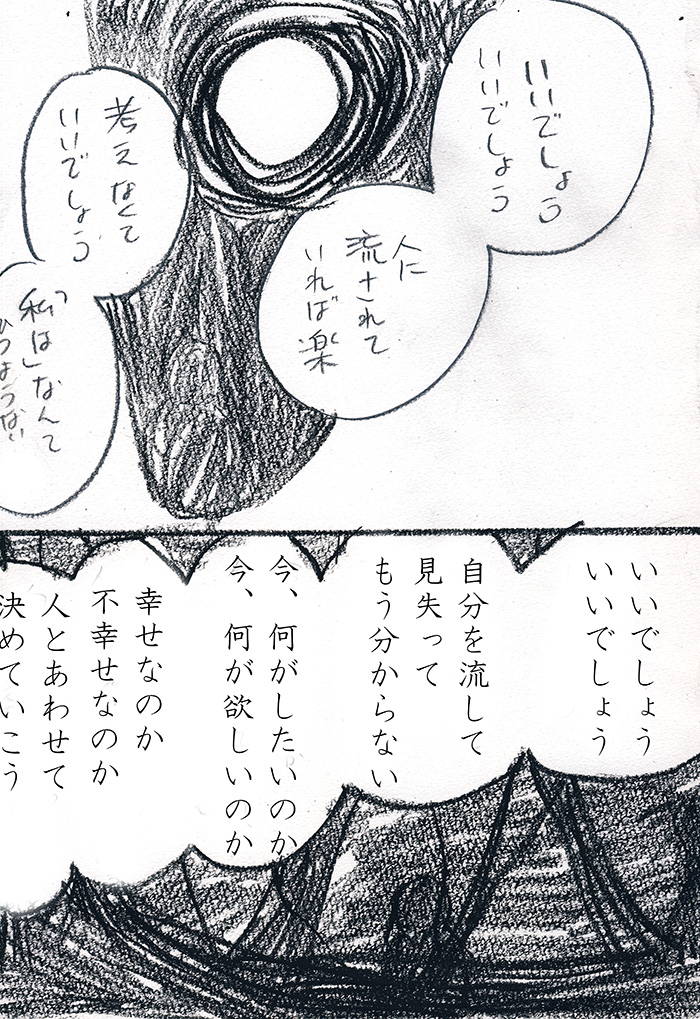 いいでしょう
いいでしょう
人に
流されて
いれば楽
考えなくて
いいでしょう
「私は」なんて
ひつようない
いいでしょう
いいでしょう
自分を流して
見失って
もう分からない
今、何がしたいのか
今、何が欲しいのか
幸せなのか
不幸せなのか
人とあわせて
決めていこう